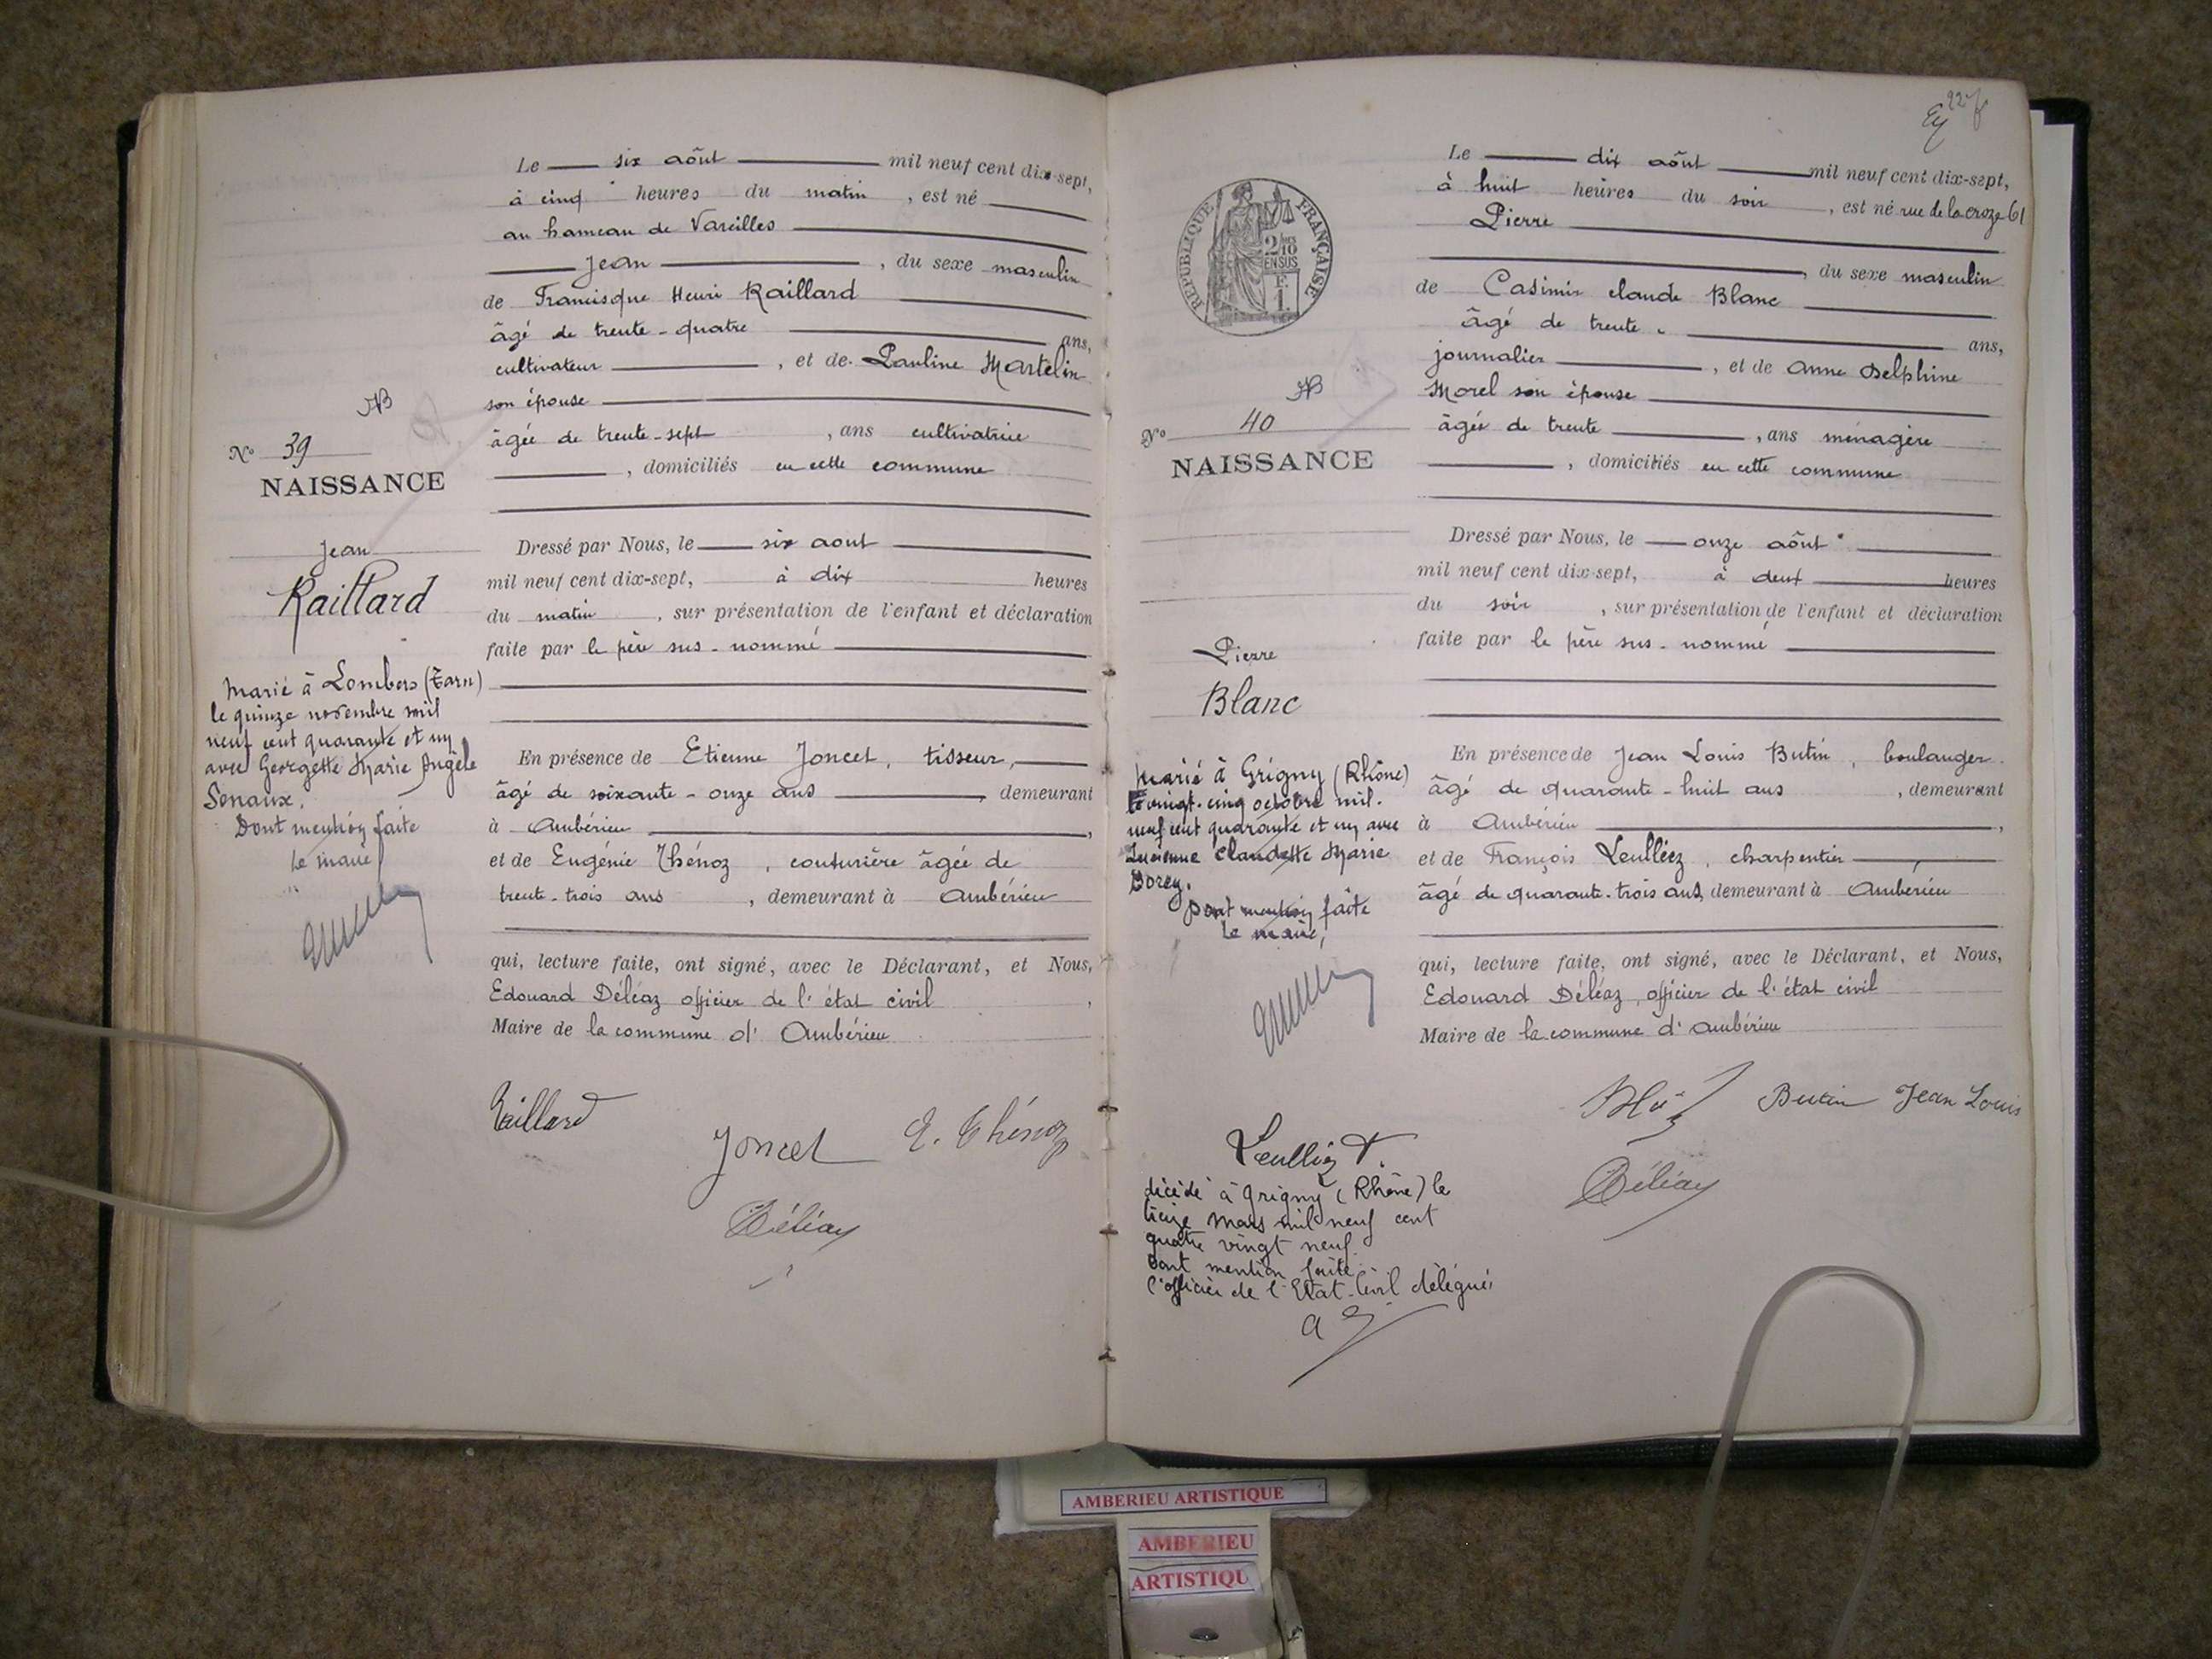 Le six aôut mil neuf cent dix-sept,
à cinq heures du matin, est né
au hameau de Vareilles
Jean, du sexe masculin
de Francisque Henri Raillard
âgé de trente-quatre ans,
cultivateur, et de Pauline Martelin
son épouse
âgée de trente-sept, ans cultivatrice
, domiciliés en cette commune
AB
N° 39
NAISSANCE
Jean
Raillard
Dressé par Nous, le six aout
mil neuf cent dix-sept, à dix heures
du matin, sur présentation de l'enfant et déclaration
faite par le père sus-nommé
Marié à Lombers (Tarn)
le quinze novembre mil
neuf cent quarante et un
avec Georgette Marie Angèle
Senaux.
Dont mention faite
le maire
En présence de Etienne Joncet, tisseur,
âgé de soixante-onze ans, demeurant
à Ambérieu,
et de Eugénie Thénoz, couturière âgée de
trente-trois ans, demeurant à Ambérieu
qui, lecture faite, ont signé, avec le Déclarant, et Nous,
Edouard Déléaz officier de l'état civil,
Maire de la commune d'Ambérieu
Raillard
Joncet E. Thénoz
Déléaz
227
Le dix aôut mil neuf cent dix-sept,
à huit heures du soir, est né rue de la croze 61
Pierre
, du sexe masculin
de Casimir claude Blanc
âgé de trente ans,
journalier, et de Anne Delphine
Morel son épouse
âgée de trente, ans ménagère
, domiciliés en cette commune
RÉPUBLIQUE FRANÇAISE
2/10 EN SUS
AB
N° 40
NAISSANCE
Pierre
Blanc
Dressé par Nous, le onze aôut
mil neuf cent dix-sept, à deux heures
du soir, sur présentation de l'enfant et déclaration
faite par le père sus-nommé
Marié à Grigny (Rhône)
le vingt-cinq octobre mil
neuf cent quarante et un avec
Lucienne Claudette Marie
Dorey.
Dont mention faite
le maire,
En présence de Jean Louis Butin, boulanger
âgé de quarante-huit ans, demeurant
à Ambérieu,
et de François Leulliez, charpentier
âgé de quarante-trois ans, demeurant à Ambérieu
qui, lecture faite, ont signé, avec le Déclarant, et Nous,
Edouard Déléaz, officier de l'état civil
Maire de la commune d'Ambérieu
Butin Jean Louis
Leulliez F.
Déléaz
décédé à Grigny (Rhône) le
treize mars mil neuf cent
quatre vingt neuf.
Dont mention faite.
l'officier de l'Etat-Civil délégué,
AMBERIEU ARTISTIQUE
AMBERIEU
ARTISTIQU